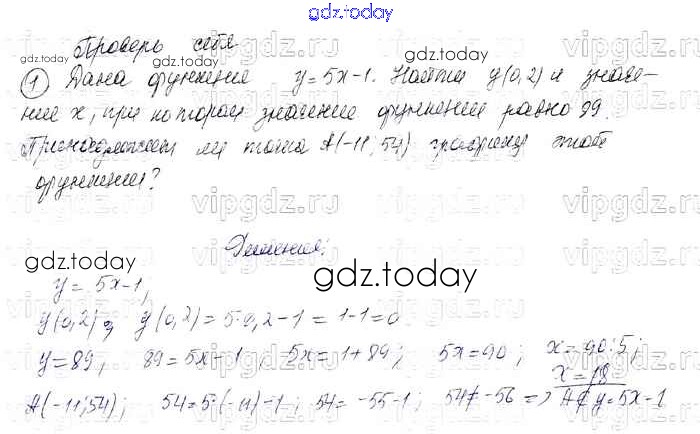 gdz.today
Проверь себя
gdz.today
gdz.today
1 Дана функция y=5x-1. Найти y(0,2) и значе-
ние x, при котором значение функции равно 89.
Принадлежит ли точка A(-11;54) графику этой
функции?
vipgdz.ru vipgdz.ru vipgdz.ru
Решение:
gdz.today
gdz.today
y = 5x-1;
y(0,2) y(0,2) = 5·0,2-1 = 1-1=0
y=89, 89=5x-1; 5x=1+89; 5x=90; x=90:5;
x=18
A(-11;54); 54=5·(-11)-1; 54= -55-1; 54≠-56 => A∉y=5x-1
gdz.today